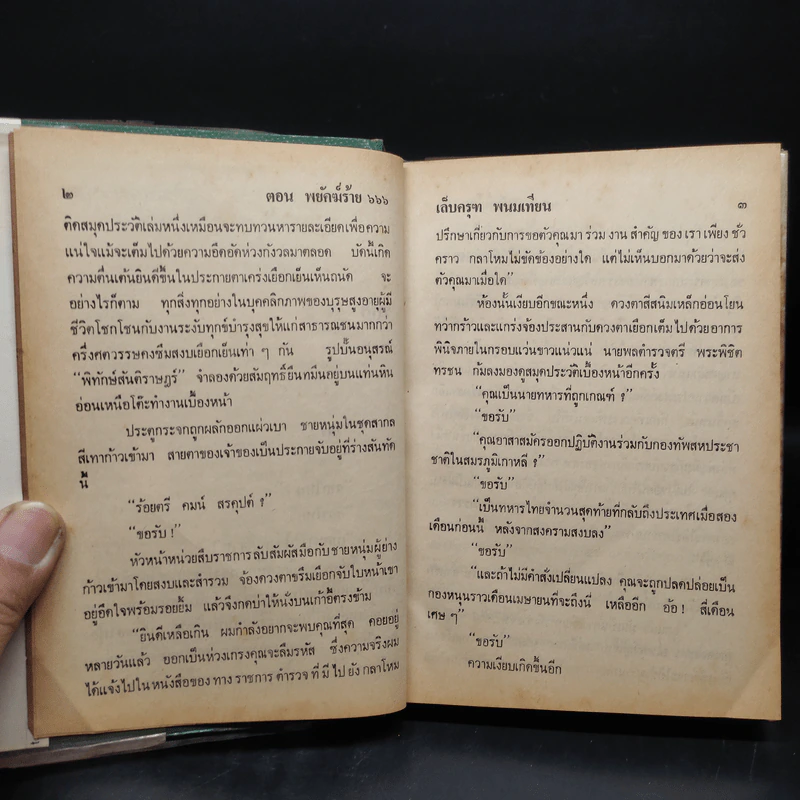 ๒ ตอน พยัคฆ์ร้าย ๖๖๖
ติดสมุดประวัติเล่มหนึ่งเหมือนจะทบทวนหารายละเอียดเพื่อความ
แน่ใจแม้จะเต็มไปด้วยความอึดอัดห่วงกังวลมาตลอด บัดนี้เกิด
ความตื่นเต้นยินดีขึ้นในประกายตาเคร่งเยือกเย็นเห็นถนัด จะ
อย่างไรก็ตาม ทุกสิ่งทุกอย่างในบุคคลิกภาพของบุรุษสูงอายุผู้มี
ชีวิตโชกโชนกับงานระงับทุกข์บำรุงสุขให้แก่สาธารณชนมากกว่า
ครึ่งศตวรรษคงซึมสงบเยือกเย็นเท่า ๆ กัน รูปปั้นอนุสรณ์
“พิทักษ์สันติราษฎร์” จำลองด้วยสัมฤทธิ์ยืนทมึนอยู่บนแท่นหิน
อ่อนเหนือโต๊ะทำงานเบื้องหน้า
ประตูกระจกถูกผลักออกแผ่วเบา ชายหนุ่มในชุดสากล
สีเทาก้าวเข้ามา สายตาของเจ้าของเป็นประกายจับอยู่ที่ร่างสันทัด
นี้
“ร้อยตรี คมน์ สรคุปต์ ?”
“ขอรับ !”
หัวหน้าหน่วยสืบราชการลับสัมผัสมือกับชายหนุ่มผู้ย่าง
ก้าวเข้ามาโดยสงบและสำรวม จ้องดวงตาขรึมเยือกจับใบหน้าเขา
อยู่อึดใจพร้อมรอยยิ้ม แล้วจึงกดบ่าให้นั่งบนเก้าอี้ตรงข้าม
“ยินดีเหลือเกิน ผมกำลังอยากจะพบคุณที่สุด คอยอยู่
หลายวันแล้ว ออกเป็นห่วงเกรงคุณจะลืมรหัส ซึ่งความจริงผม
ได้แจ้งไปใน หนังสือของ ทาง ราชการ ตำรวจ ที่ มี ไป ยัง กลาโหม
เล็บครุฑ พนมเทียน ๓
ปรึกษาเกี่ยวกับการขอตัวคุณมา ร่วม งาน สำคัญ ของ เรา เพียง ชั่ว
คราว กลาโหมไม่ขัดข้องอย่างใด แต่ไม่เห็นบอกมาด้วยว่าจะส่ง
ตัวคุณมาเมื่อใด”
ห้องนั้นเงียบอีกขณะหนึ่ง ดวงตาสีสนิมเหล็กอ่อนโยน
ทว่ากร้าวและแกร่งจ้องประสานกับดวงตาเยือกเต็มไปด้วยอาการ
พินิจภายในกรอบแว่นขาวแน่วแน่ นายพลตำรวจตรี พระพิชิต
ทรชน ก้มลงมองดูสมุดประวัติเบื้องหน้าอีกครั้ง
“คุณเป็นนายทหารที่ถูกเกณฑ์ ?”
“ขอรับ”
“คุณอาสาสมัครออกปฏิบัติงานร่วมกับกองทัพสหประชา
ชาติในสมรภูมิเกาหลี ?”
“ขอรับ”
“เป็นทหารไทยจำนวนสุดท้ายที่กลับถึงประเทศเมื่อสอง
เดือนก่อนนี้ หลังจากสงครามสงบลง”
“ขอรับ”
“และถ้าไม่มีคำสั่งเปลี่ยนแปลง คุณจะถูกปลดปล่อยเป็น
กองหนุนราวเดือนเมษายนที่จะถึงนี่ เหลืออีก อ้อ ! สี่เดือน
เศษ ๆ”
“ขอรับ”
ความเงียบเกิดขึ้นอีก